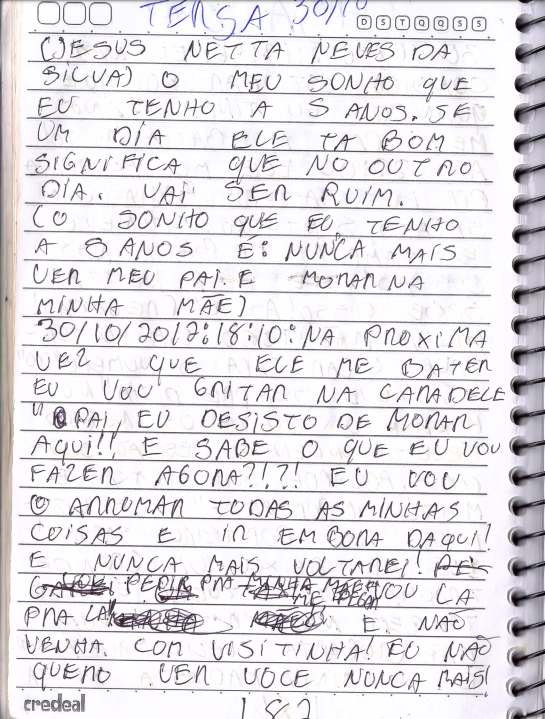 TERSA 30/10
D S T Q Q S S
(JESUS NETTA NEVES DA
SILVA) O MEU SONHO QUE
EU TENHO A 5 ANOS. SE
UM DIA ELE TA BOM
SIGNIFICA QUE NO OUTRO
DIA. VAI SER RUIM.
(O SONHO QUE EU TENHO
A 8 ANOS E: NUNCA MAIS
VER MEU PAI. E MORAR NA
MINHA MÃE)
30/10/2012:18:10: NA PROXIMA
VEZ QUE ELE ME BATER
EU VOU GRITAR NA CARA DELE
"PAI, EU DESISTO DE MORAR
AQUI!! E SABE O QUE EU VOU
FAZER AGORA?!?! EU VOU
ARRUMAR TODAS AS MINHAS
COISAS E IR EMBORA DAQUI!
E NUNCA MAIS VOLTAREI!
VOU PEDIR PRA MINHA MÃE VOU LA
ME PEGAR
PRA LA E NÃO
VENHA COM VISITINHA! EU NÃO
QUERO VER VOCE NUNCA MAIS!
credeal
182